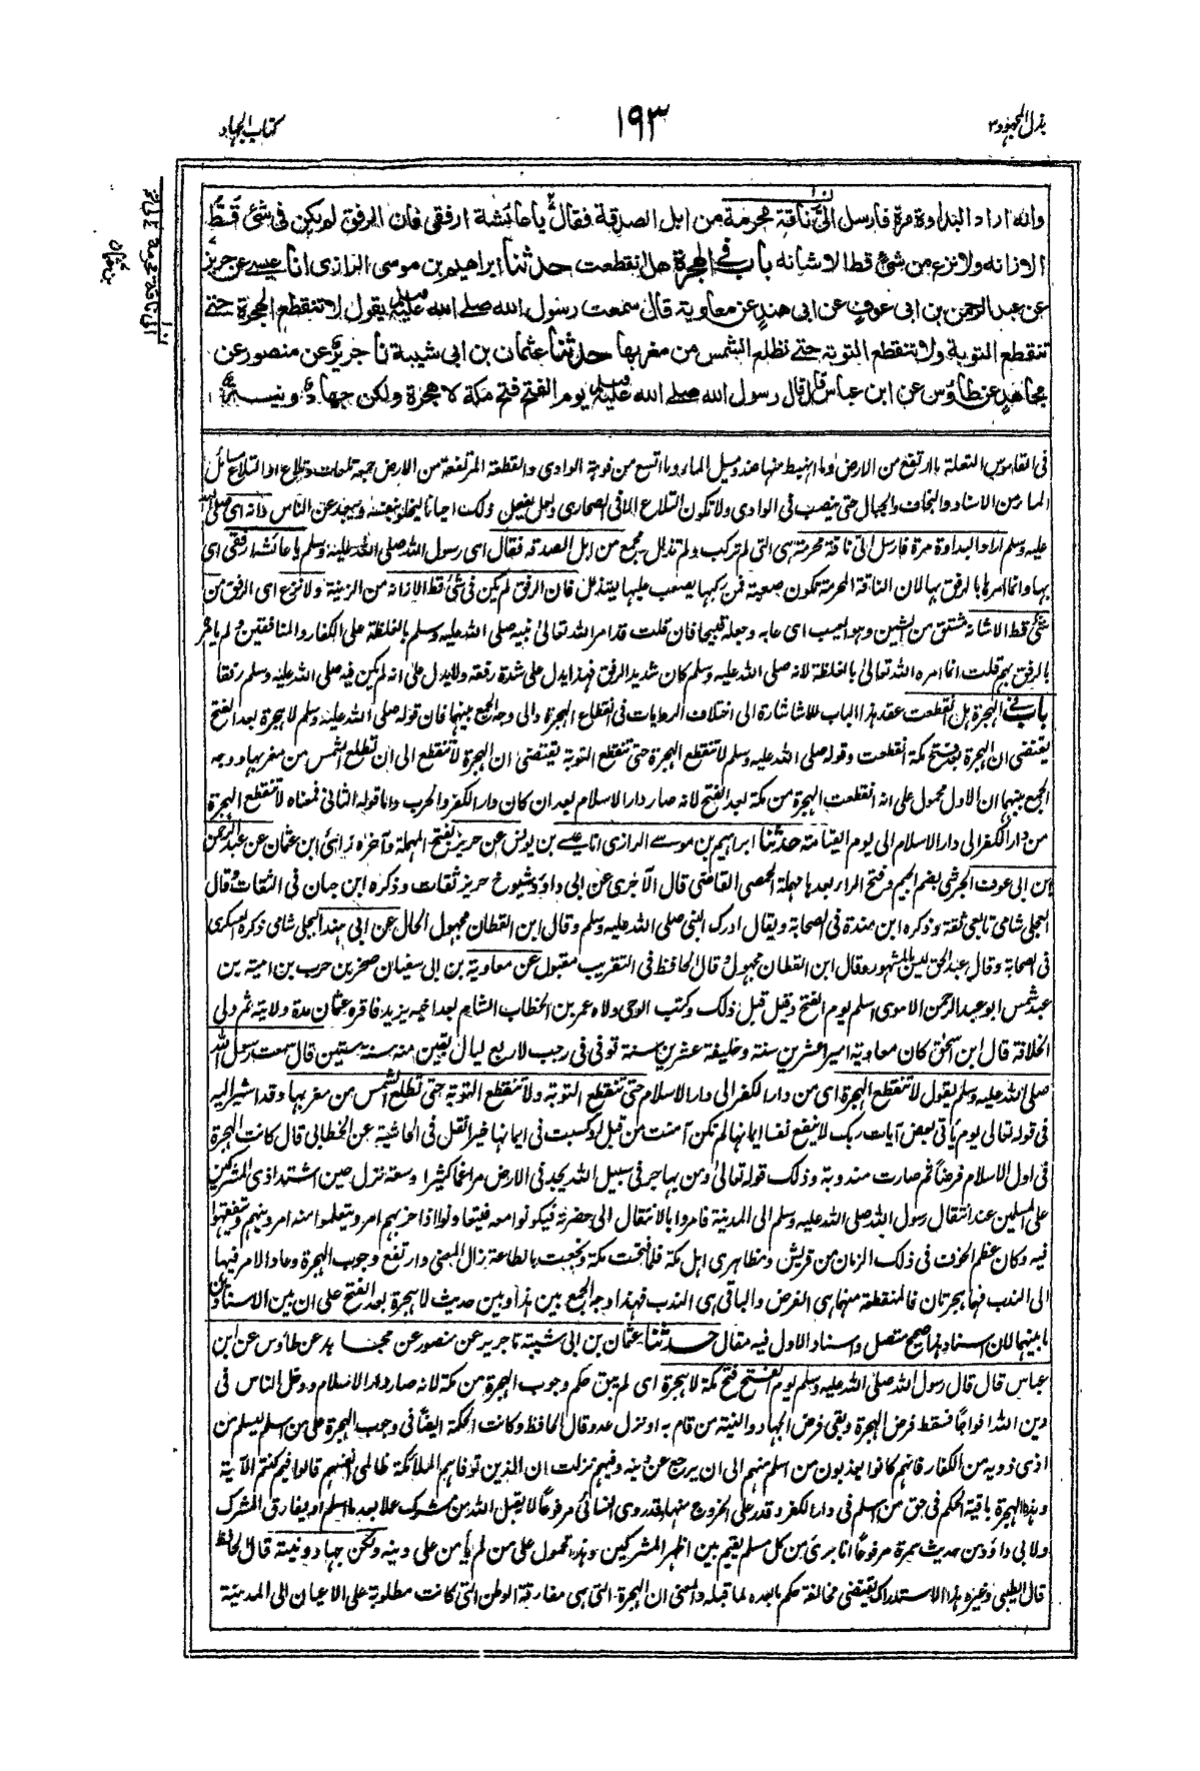 بذل المجهود ٣
١٩٣
كتاب الجهاد
وانه اراد البداوة مرة فارسل الىّ ناقة محرمة من ابل الصدقة فقال يا عائشة ارفقى فان الرفق لم يكن فى شئ قط
الا زانه ولا نزع من شئ قط الا شانه باب فى الهجرة هل انقطعت حدثنا ابراهيم بن موسى الرازى انا عيسى عن حريز
عن عبد الرحمن بن ابى عوف عن ابى هند عن معاوية قال سمعت رسول الله صلى الله عليه وسلم يقول لا تنقطع الهجرة حتى
تنقطع التوبة ولا تنقطع التوبة حتى تطلع الشمس من مغربها حدثنا عثمان بن ابى شيبة نا جرير عن منصور عن
مجاهد عن طاؤس عن ابن عباس قال قال رسول الله صلى الله عليه وسلم يوم الفتح فتح مكة لا هجرة ولكن جهاد ونية
فى القاموس التلعة ما ارتفع من الارض وما انهبط منها ضد ومسيل الماء وما اتسع من فوهة الوادى والقطعة المرتفعة من الارض جمعه تلعات وتلاع او التلاع مسائل
الماء من الاسناد والنجاف والجبال حتى ينصب فى الوادى ولا تكون التلاع الا فى الصحارى ولعل يفعل ذلك احيانا ليخلو بنفسه ويبعد عن الناس وانه اى صلى الله
عليه وسلم اراد البداوة مرة فارسل الى ناقة محرمة هى التى لم تركب ولم تذلل جمع من ابل الصدقة فقال اى رسول الله صلى الله عليه وسلم يا عائشة ارفقى اى
بها وانما امرها بالرفق بها لان الناقة المحرمة تكون صعبة فمن ركبها يصعب عليها ليتذلل فان الرفق لم يكن فى شئ قط الا زانه من الزينة ولا نزع اى الرفق من
شئ قط الا شانه مشتق من الشين وهو العيب اى عابه وجعله قبيحا فان قلت قد امر الله تعالىٰ نبيه صلى الله عليه وسلم بالغلظة على الكفار والمنافقين ولم يامر
بالرفق بهم قلت انما امره الله تعالىٰ بالغلظة لانه صلى الله عليه وسلم كان شديد الرفق فهذا يدل على شدة رفقه ولا يدل على انه لم يكن فيه صلى الله عليه وسلم رفقا
باب فى الهجرة هل انقطعت عقد هذا الباب للاشارة الى اختلاف الروايات فى انقطاع الهجرة والى وجه الجمع بينهما فان قوله صلى الله عليه وسلم لا هجرة بعد الفتح
يقتضى ان الهجرة بعد فتح مكة انقطعت وقوله صلى الله عليه وسلم لا تنقطع الهجرة حتى تنقطع التوبة يقتضى ان الهجرة لا تنقطع الى ان تطلع الشمس من مغربها ووجه
الجمع بينهما ان الاول محمول على انه انقطعت الهجرة من مكة بعد الفتح لانه صار دار الاسلام بعد ان كان دار الكفر والحرب واما قوله الثانى فمعناه لا تنقطع الهجرة
من دار الكفر الى دار الاسلام الى يوم القيامة حدثنا ابراهيم بن موسى الرازى انا عيسى بن يونس عن حريز بفتح المهملة وآخره زاى ابن عثمان عن عبد الرحمن
ابن ابى عوف الجرشى بضم الجيم وفتح الراء بعدها مهملة الحمصى القاضى قال الآجرى عن ابى داؤد شيوخ حريز ثقات وذكره ابن حبان فى الثقات وقال
العجلى شامى تابعى ثقة وذكره ابن مندة فى الصحابة ويقال ادرك النبى صلى الله عليه وسلم وقال ابن القطان مجهول الحال عن ابى هند البجلى شامى ذكره العسكرى
فى الصحابة وقال عبد الحق ليس بالمشهور وقال ابن القطان مجهول وقال الحافظ فى التقريب مقبول عن معاوية بن ابى سفيان صخر بن حرب بن امية بن
عبد شمس ابو عبد الرحمن الاموى اسلم يوم الفتح وقيل قبل ذلك وكتب الوحى ولاه عمر بن الخطاب الشام بعد اخيه يزيد فاقره عثمان مدة ولايته ثم ولى
الخلافة قال ابن اسحق كان معاوية اميرا عشرين سنة وخليفة عشرين سنة توفى فى رجب لاربع ليال بقين منه سنة ستين قال سمعت رسول الله
صلى الله عليه وسلم يقول لا تنقطع الهجرة اى من دار الكفر الى دار الاسلام حتى تنقطع التوبة ولا تنقطع التوبة حتى تطلع الشمس من مغربها وقد اشير اليه
فى قوله تعالى يوم ياتى بعض آيات ربك لا ينفع نفسا ايمانها لم تكن آمنت من قبل او كسبت فى ايمانها خيرا نقل فى الحاشية عن الخطابى قال كانت الهجرة
فى اول الاسلام فرضا ثم صارت مندوبة وذلك قوله تعالىٰ ومن يهاجر فى سبيل الله يجد فى الارض مراغما كثيرا وسعة نزل حين اشتد اذى المشركين
على المسلمين عند انتقال رسول الله صلى الله عليه وسلم الى المدينة فامروا بالانتقال الى حضرته ليكونوا معه فيتعاونوا اذا حزبهم امر ويتعلموا منه امر دينهم ويتفقهوا
فيه وكان عظم الخوف فى ذلك الزمان من قريش ومظاهرى اهل مكة فلما فتحت مكة ونجعت بالطاعة زال المعنى وارتفع وجوب الهجرة وعاد الامر فيها
الى الندب فهما هجرتان فالمنقطعة منهما هى الفرض والباقى هى الندب فهذا وجه الجمع بين هذا وبين حديث لا هجرة بعد الفتح على ان بين الاسنادين
ما بينهما لان اسناد هذا صحيح متصل واسناد الاول فيه مقال حدثنا عثمان بن ابى شيبة نا جرير عن منصور عن مجاهد عن طاؤس عن ابن
عباس قال قال رسول الله صلى الله عليه وسلم يوم الفتح فتح مكة لا هجرة اى لم يبق حكم وجوب الهجرة من مكة لانه صار دار الاسلام ودخل الناس فى
دين الله افواجا فسقط فرض الهجرة وبقى فرض الجهاد والنية من قام به او نزل عدو قال الحافظ وكانت الحكمة ايضا فى وجوب الهجرة على من اسلم ليسلم من
اذى ذويه من الكفار فانهم كانوا يعذبون من اسلم منهم الى ان يرجع عن دينه وفيهم نزلت ان الذين توفاهم الملائكة ظالمى انفسهم قالوا فيم كنتم الآية
وهذه الهجرة باقية الحكم فى حق من اسلم فى دار الكفر وقدر على الخروج منها وقد روى النسائى مرفوعا لا يقبل الله من مشرك عملا بعد ما اسلم او يفارق المشرك
ولابى داؤد من حديث سمرة مرفوعا انا برئ من كل مسلم يقيم بين اظهر المشركين وهذا محمول على من لم يأمن على دينه ولكن جهاد ونية قال الحافظ
قال الطيبى وغيره هذا الاستدراك يقتضى مخالفة حكم ما بعده لما قبله والمعنى ان الهجرة التى هى مفارقة الوطن التى كانت مطلوبة على الاعيان الى المدينة